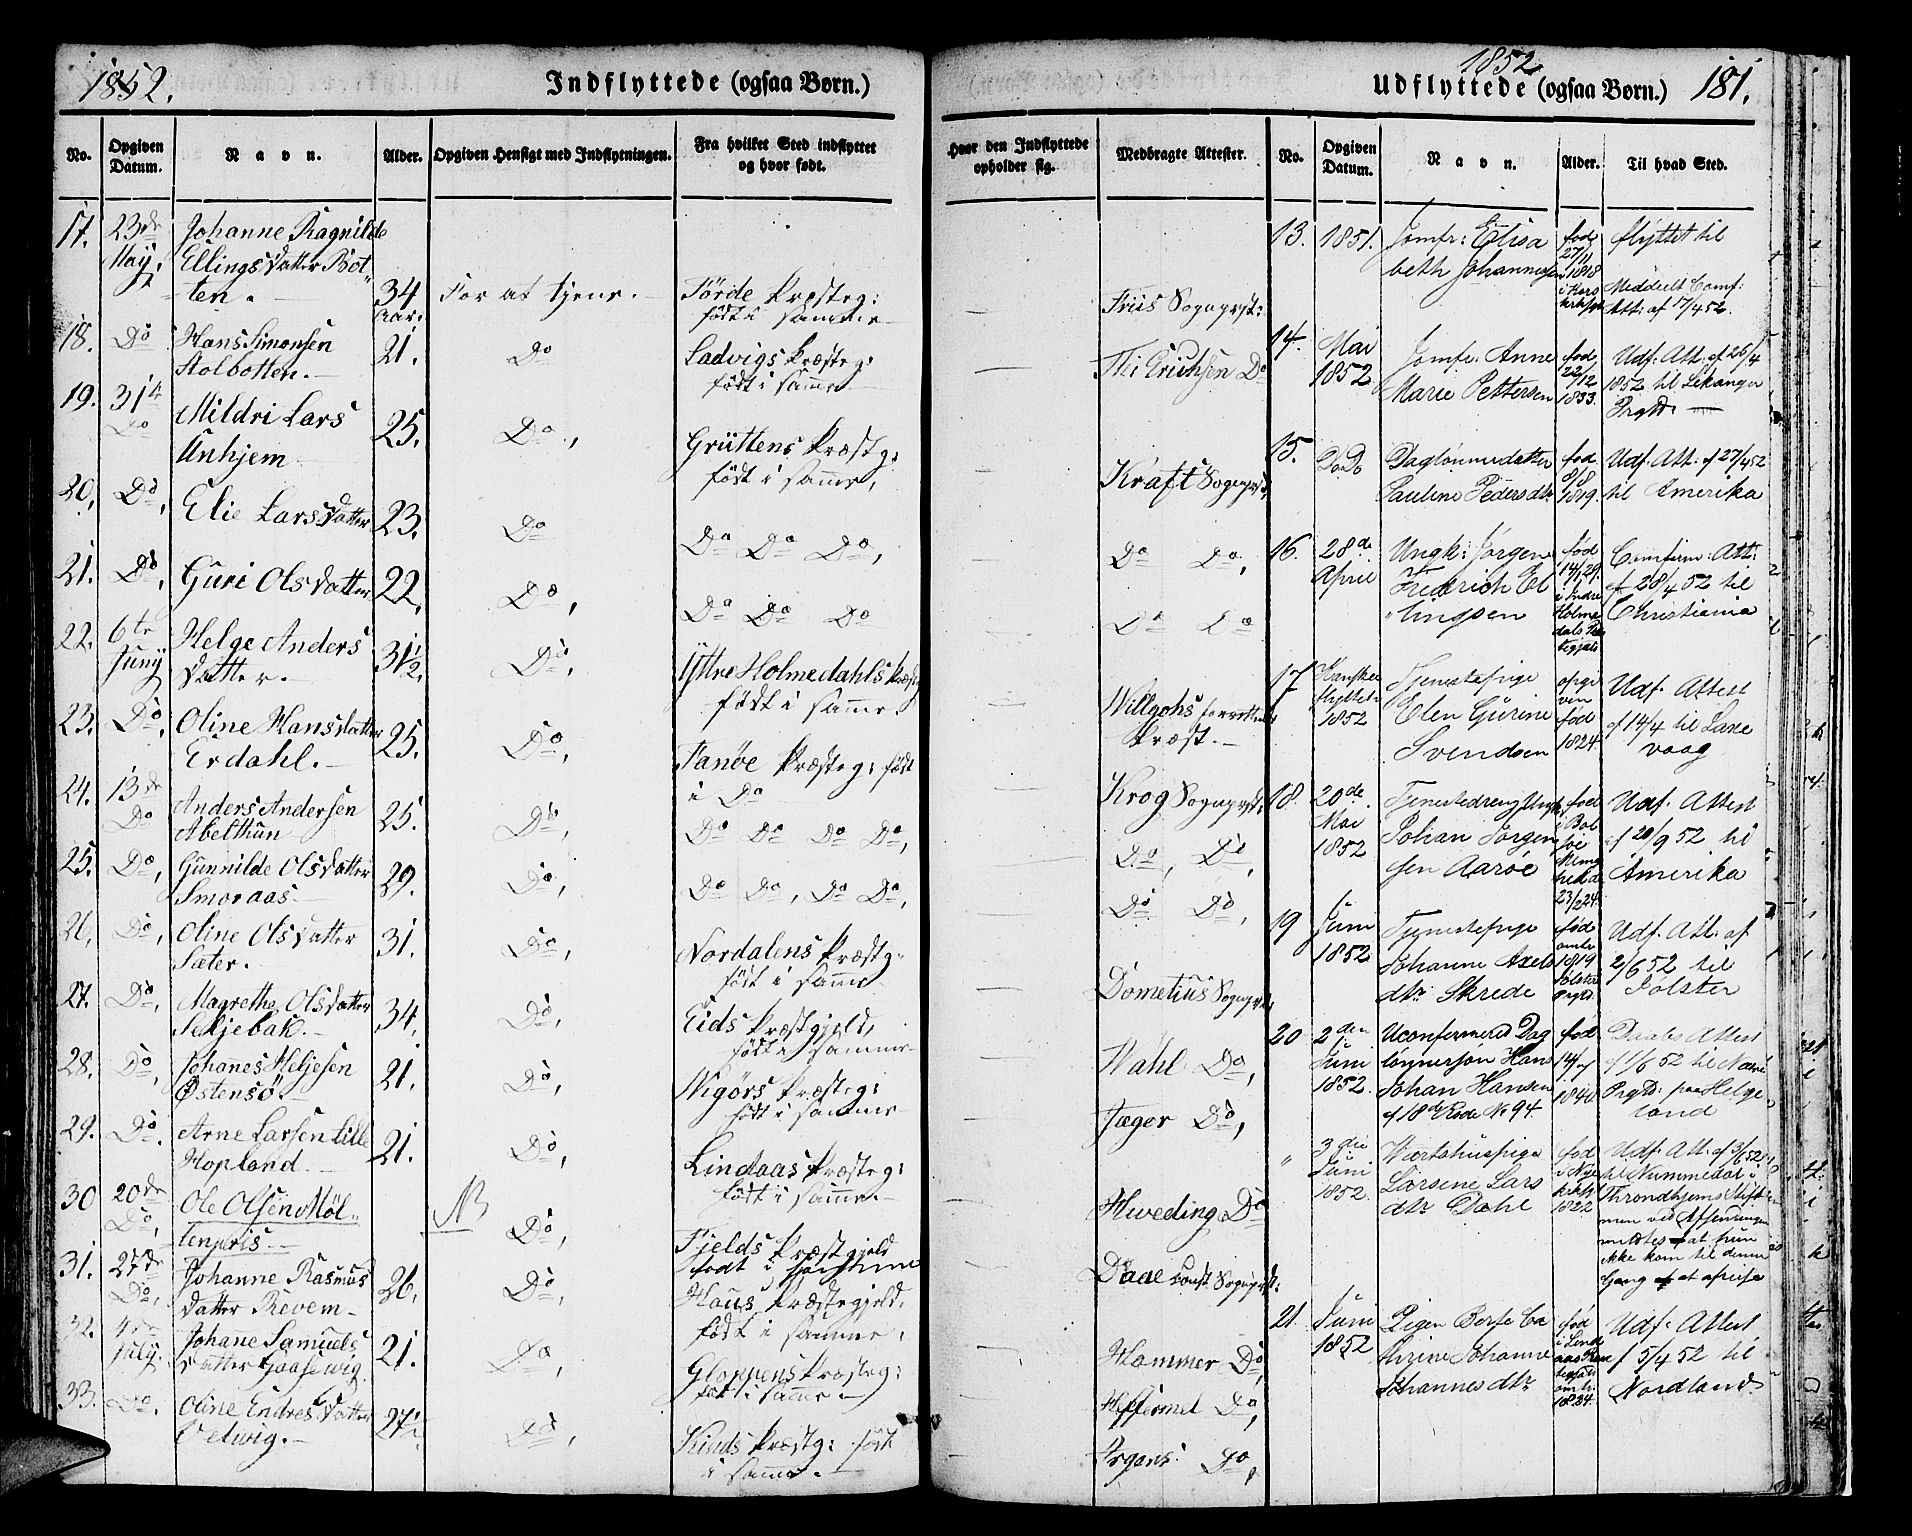 1852.
Indflyttede (ogsaa Børn.)
No.
Opgiven Datum.
Navn.
Alder.
Opgiven Hensigt med Indflytningen.
Fra hvilket Sted indflyttet og hvor født.
17. 23de May, Johanne Ragnilde Ellings Datter Botten. 34 Aar. For at tjene. Förde Præsteg: födt i samme
18. Do Hans Simonsen Stolbotten. 21. Do Ladvigs Præsteg: födt i samme
19. 31te Do Mildri Lars Unhjem 25. Do, Gryttens Præstg: födt i samme,
20, Do, Elie Larsdatter 23. Do Do Do Do,
21. Do, Guri Olsdatter 22. Do, Do Do Do
22. 6te Juny Helge Anders Datter. 31 1/2. Do, Yttre Holmedahls Præstg födt i samme
23. Do, Oline Hansdatter Erdahl. 25. Do, Fanøe Præsteg: födt i Do
24. 13de Do Anders Andersen Abelthun 25. Do, Do Do Do Do,
25. Do, Gunnilde Olsdatter Smoraas. 29. Do, Do Do, Do Do,
26, Do, Oline Olsdatter Sæter. 31. Do, Nordalens Præstg. födt i samme
27. Do, Magrethe Olsdatter Seljebak. 34. Do, Eids Præstgjeld, födt i samme
28. Do, Johanes Heljesen Østensö. 21. Do, Vigörs Præsteg: födt i samme
29. Do. Arne Larsen Lille Hopland. 21. Do, Lindaas Præsteg: födt i samme.
30 20de Do, Ole Olsen Möllenpris. NB Do, Fjelds Præstgjeld
31. 27de Do, Johanne Rasmus Datter Revem 26. Do, Haus Præstegjeld, födt i samme,
32. July. Johane Samuels Datter Gaasewig 21. Do, Gloppens Præsteg: födt i samme.
33. Do. Oline Endres Datter 27 Do, Kinds Præstg: födt i samme.
1852
Udflyttede (ogsaa Børn.) 181.
Hvor den Indflyttede opholder sig.
Medbragte Attester.
No.
Opgiven Datum.
Navn.
Alder.
Til hvad Sted.
Friis Sognprst:
Th: Erichsen Do
Kraft Sognprst
Do Do,
Do Do
Willgohs Præst.
Krog Sognprst:
Do, Do,
Do Do,
Dometius Sognprst
Wahl Do,
Jæger Do,
Hweding Do
Daae Const Sognprst:
Hammer Do,
Heffermel Do,
Do,
13. 1851. Jomfr: Elisabeth Johannesen fød 27/11 1818 flyttet til Meddelt Comf: Att: af 17/4 52.
14. Mai 1852 Jomfr. Anne Marie Pettersen fød 22/12 1833. Udf. Att. af 26/4 1852 til Lekanger Prgld.
15. Do Do Daglönnerdatter Pauline Pedersdtr fød 8/8 1819. Udf. Att. af 27/4 52 til Amerika
16. 28de April Ungk: Jørgen Fredrich Ellingsen fød 14/1 29. i Indre Holmedals Comfirm: Att: af 28/4 52 til Christiania
17 1852 Tjenestepige Elen Gurine Svendsen opgiven fød 1824 Udf. Attest af 14/4 til Laxevaag
18. 20de Mai 1852 Tjenestedreng Johan Jørgensen Aarøe fød i Bolsøe 23/2 24. Udf. Attest af 20/9 52 til Amerika
19 Juni 1852 Tjenestepige Johanne Axelsdtr Skrede fød omtr 1819 Jølster Prgld. Udf. Att. af 2/6 52 til Jölster
20 2den Juni 1852. Uconfirmered Daglönnersön Hans Johan Hansen af 18de Rode No 94. fød 1840. Attest af 1/6 52 til Prgld. paa Helgeland
" 3die Juni 1852. Værtshuspige Larsine Larsdtr Dahl fød 1822 Udf. Att. af 3/6 52 til Nummedal i Throndhjems Stift men ved Afsendingen meldtes at hun ikke kom til denne Gang at afreise
21 Juni 1852 Pigen Johanne Johannesdtr fød i Lindaas omtr. 1824. Udf. Attest af 5/4 52 til Nordland